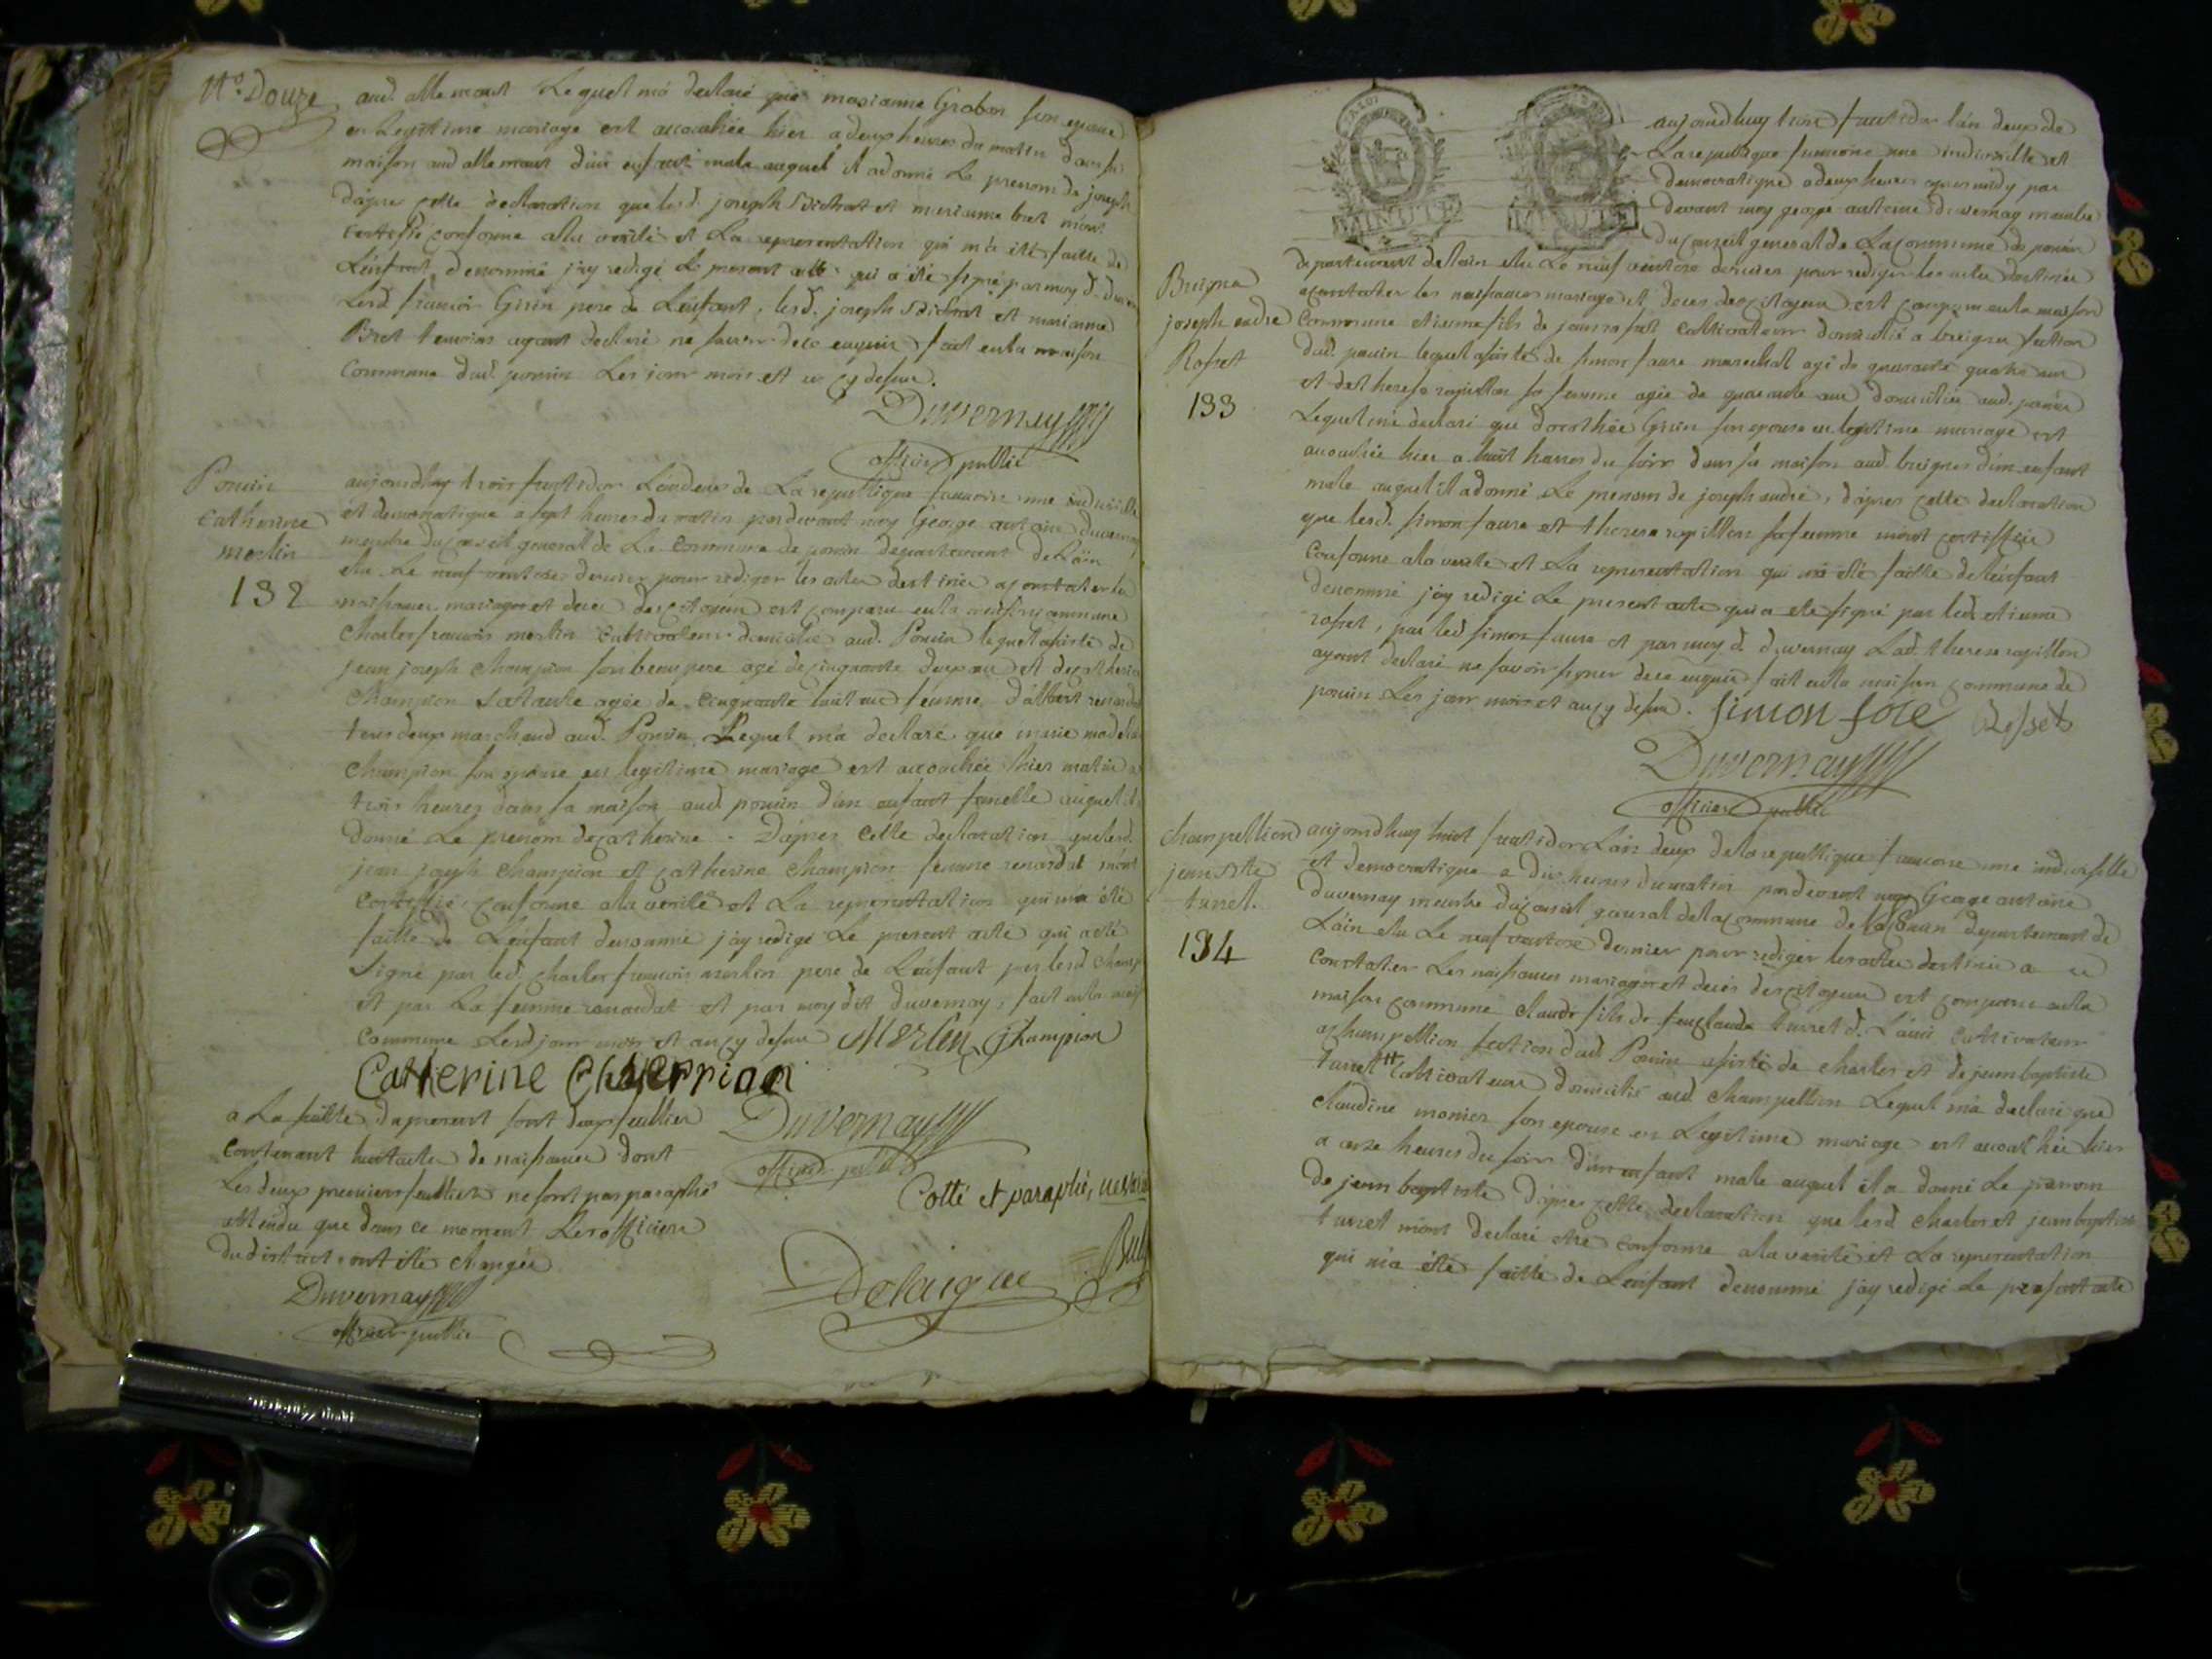 N.º Douze
aud. allemant Lequel m'a declaré que marianne Grobon son epouse
en Legitime mariage est accouchée hier a deux heures du matin dans sa
maison aud allemant d'un enfant male auquel il a donné Le prenom de joseph
d'apres cette declaration que lesd. joseph et marianne m'ont
certifié conforme a la verité et La representation qui m'a été faitte de
L'enfant denommé j'ay redigé Le present acte qui a été signé par moy d.
Lesd francois Girin pere de L'enfant, lesd. joseph et marianne
temoins ayant declaré ne savoir de ce enquis fait en la maison
Commune dud. poncin Les jour mois et an cy dessus.
Duvernay
officier public
Poncin
Catherine
merlin
132
aujourdhuy trois fructidor L'an deux de La republique francoise une indivisible
et democratique a sept heures du matin pardevant moy George antoine duvernay
membre du conseil general de La Commune de poncin departement de L'ain
elu Le neuf ventose dernier pour rediger les actes destinés a constater les
naissances mariages et deces des citoyens est comparu en la maison commune
Charles francois merlin Cultivateur domicilié aud. Poncin lequel assisté de
jean joseph Champion son beau pere agé de cinquante deux ans et de catherine
Champion sa tante agée de Cinquante huit ans femme d'albert
tous deux marchand aud. Poncin Lequel m'a declaré que marie
Champion son epouse en legitime mariage est accouchée hier matin a
trois heures dans sa maison aud poncin d'un enfant femelle auquel il
donné Le prenom de catherine. D'apres cette declaration que lesd.
jean joseph Champion et catherine Champion femme m'ont
Certifié conforme a la verité et La representation qui m'a été
faitte de L'enfant denommé j'ay redigé Le present acte qui a été
Signé par led. charles francois merlin pere de L'enfant par lesd
et par La femme et par moy dit duvernay, fait en la
Commune Lesd jour mois et an cy dessus Merlin Champion
Catherine
Duvernay
officier public
a La suitte du present sont deux feuilles
Contenant huit actes de naissances dont
Les deux premiers feuillets ne sont pas paraphé
attendu que dans ce moment Les officiers
du district ont été changés
Duvernay
officier public
Cotté et paraphé,
Delaigue
MINUTE
MINUTE
aujourdhuy trois fructidor l'an deux de
La republique francoise une indivisible et
democratique a deux heures apres midy par
devant moy george antoine duvernay membre
du conseil general de La commune de poncin
departement de l'ain elu Le neuf ventose dernier pour rediger les actes destinés
a constater les naissances mariages et deces des citoyens est comparu en la maison
Breigna
joseph andré
Rosset
133
Commune etienne fils de rosset Cultivateur domicilié a breigna section
dud. poncin lequel assisté de simon faure marechal agé de quarante quatre ans
et de therese rapillon sa femme agée de quarante ans domiciliée aud. poncin
Lequel m'a declaré que dorothée Girin son epouse en legitime mariage est
accouchée hier a huit heures du soir dans sa maison aud. breigna d'un enfant
male auquel il a donné Le prenom de joseph andré, d'apres cette declaration
que lesd. simon faure et therese rapillon sa femme m'ont certiffiée
Conforme a la verité et La representation qui m'a été faitte de L'enfant
denommé j'ay redigé Le present acte qui a été signé par led. etienne
rosset, par led simon faure et par moy d. duvernay Lad. therese rapillon
ayant declaré ne savoir signer de ce enquis fait en la maison commune de
poncin Les jour mois et an cy dessus. simon fore
Duvernay
officier public
champellion
jean Bte
turret.
134
aujourdhuy huit fructidor L'an deux de la republique francoise une indivisible
et democratique a dix heures du matin pardevant moy George antoine
duvernay membre du conseil general de la commune de Poncin departement de
L'ain elu Le neuf ventose dernier pour rediger les actes destinés a
Constater Les naissances mariages et deces des citoyens est comparu en la
maison commune claude fils de feu claude turret d. Cultivateur
a champellion section dud Poncin assisté de charles et de jean baptiste
turret Cultivateurs domiciliés aud. champellion Lequel m'a declaré que
claudine monier son epouse en Legitime mariage est accouchée hier
a onze heures du soir d'un enfant male auquel il a donné Le prenom
de jean baptiste D'apres cette declaration que lesd. charles et jean baptiste
turret m'ont declaré etre conforme a la verité et La representation
qui m'a été faitte de L'enfant denommé j'ay redigé Le present acte